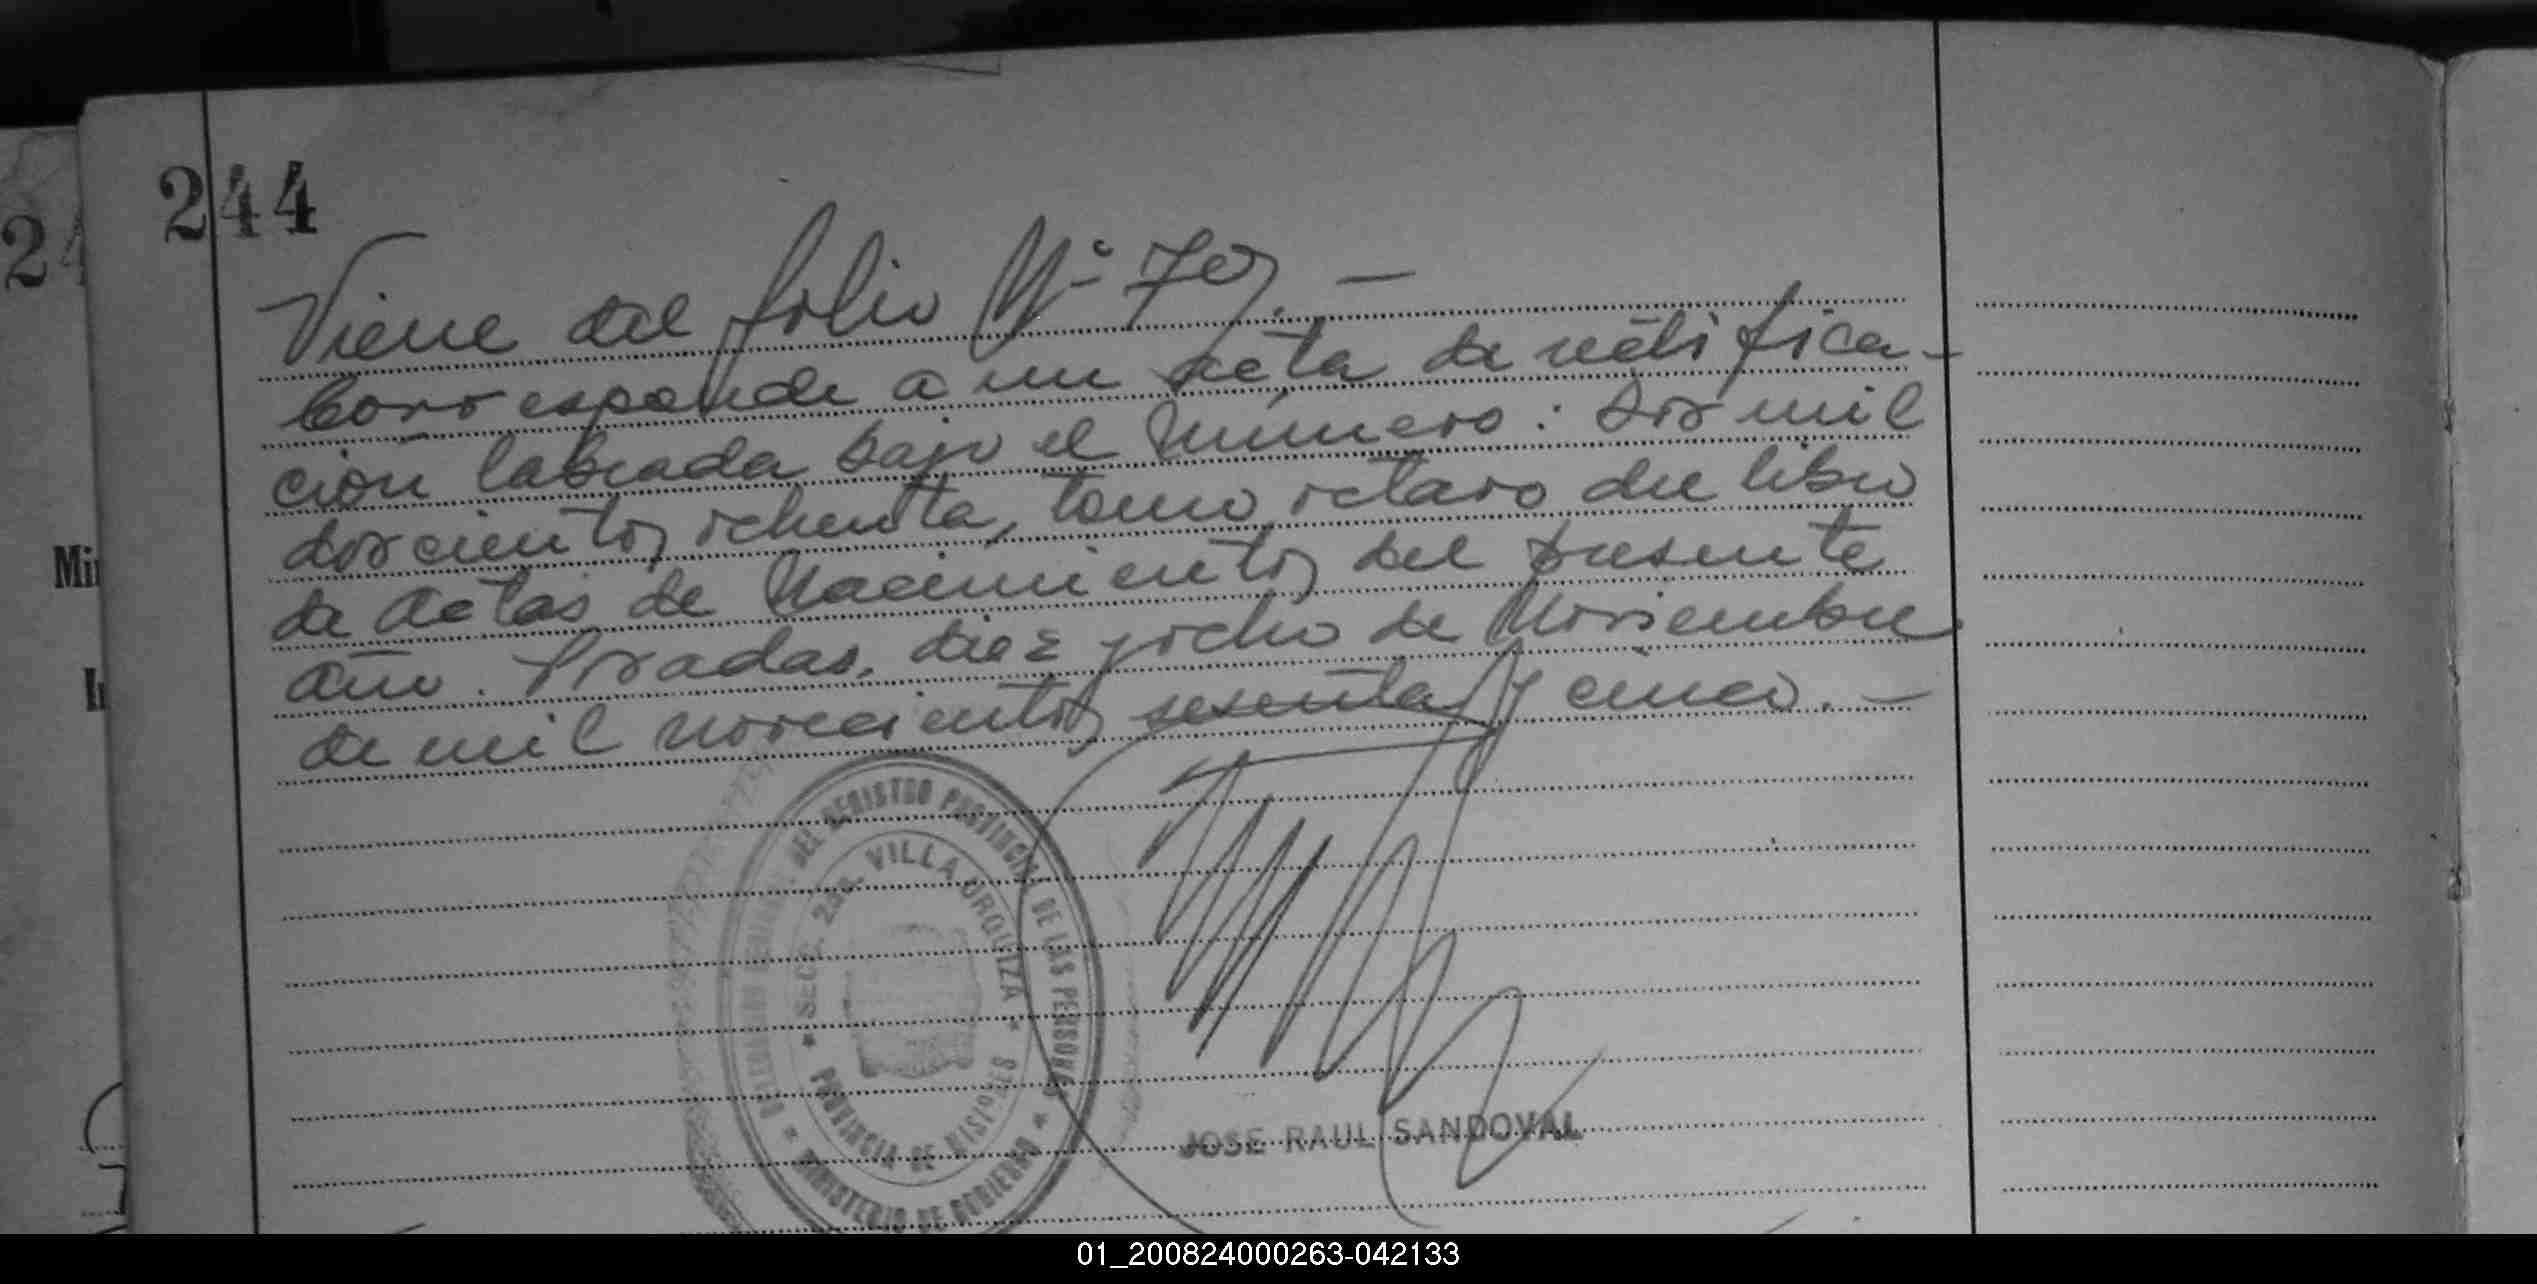 244
24
Viene del folio Nº 70. —
Corresponde a un acta de rectifica-
ción labrada bajo el Número: Dos mil
doscientos ochenta, tomo octavo del libro
de actas de Nacimientos del presente
año. Posadas, diez y ocho de Noviembre
de mil novecientos sesenta y cinco. —
Mi
DEL REGISTRO PROVINCIAL DE LAS PERSONAS
* SECC. 2da. VILLA URQUIZA *
PROVINCIA DE MISIONES
* MINISTERIO DE GOBIERNO *
JOSE RAUL SANDOVAL
01_200824000263-042133